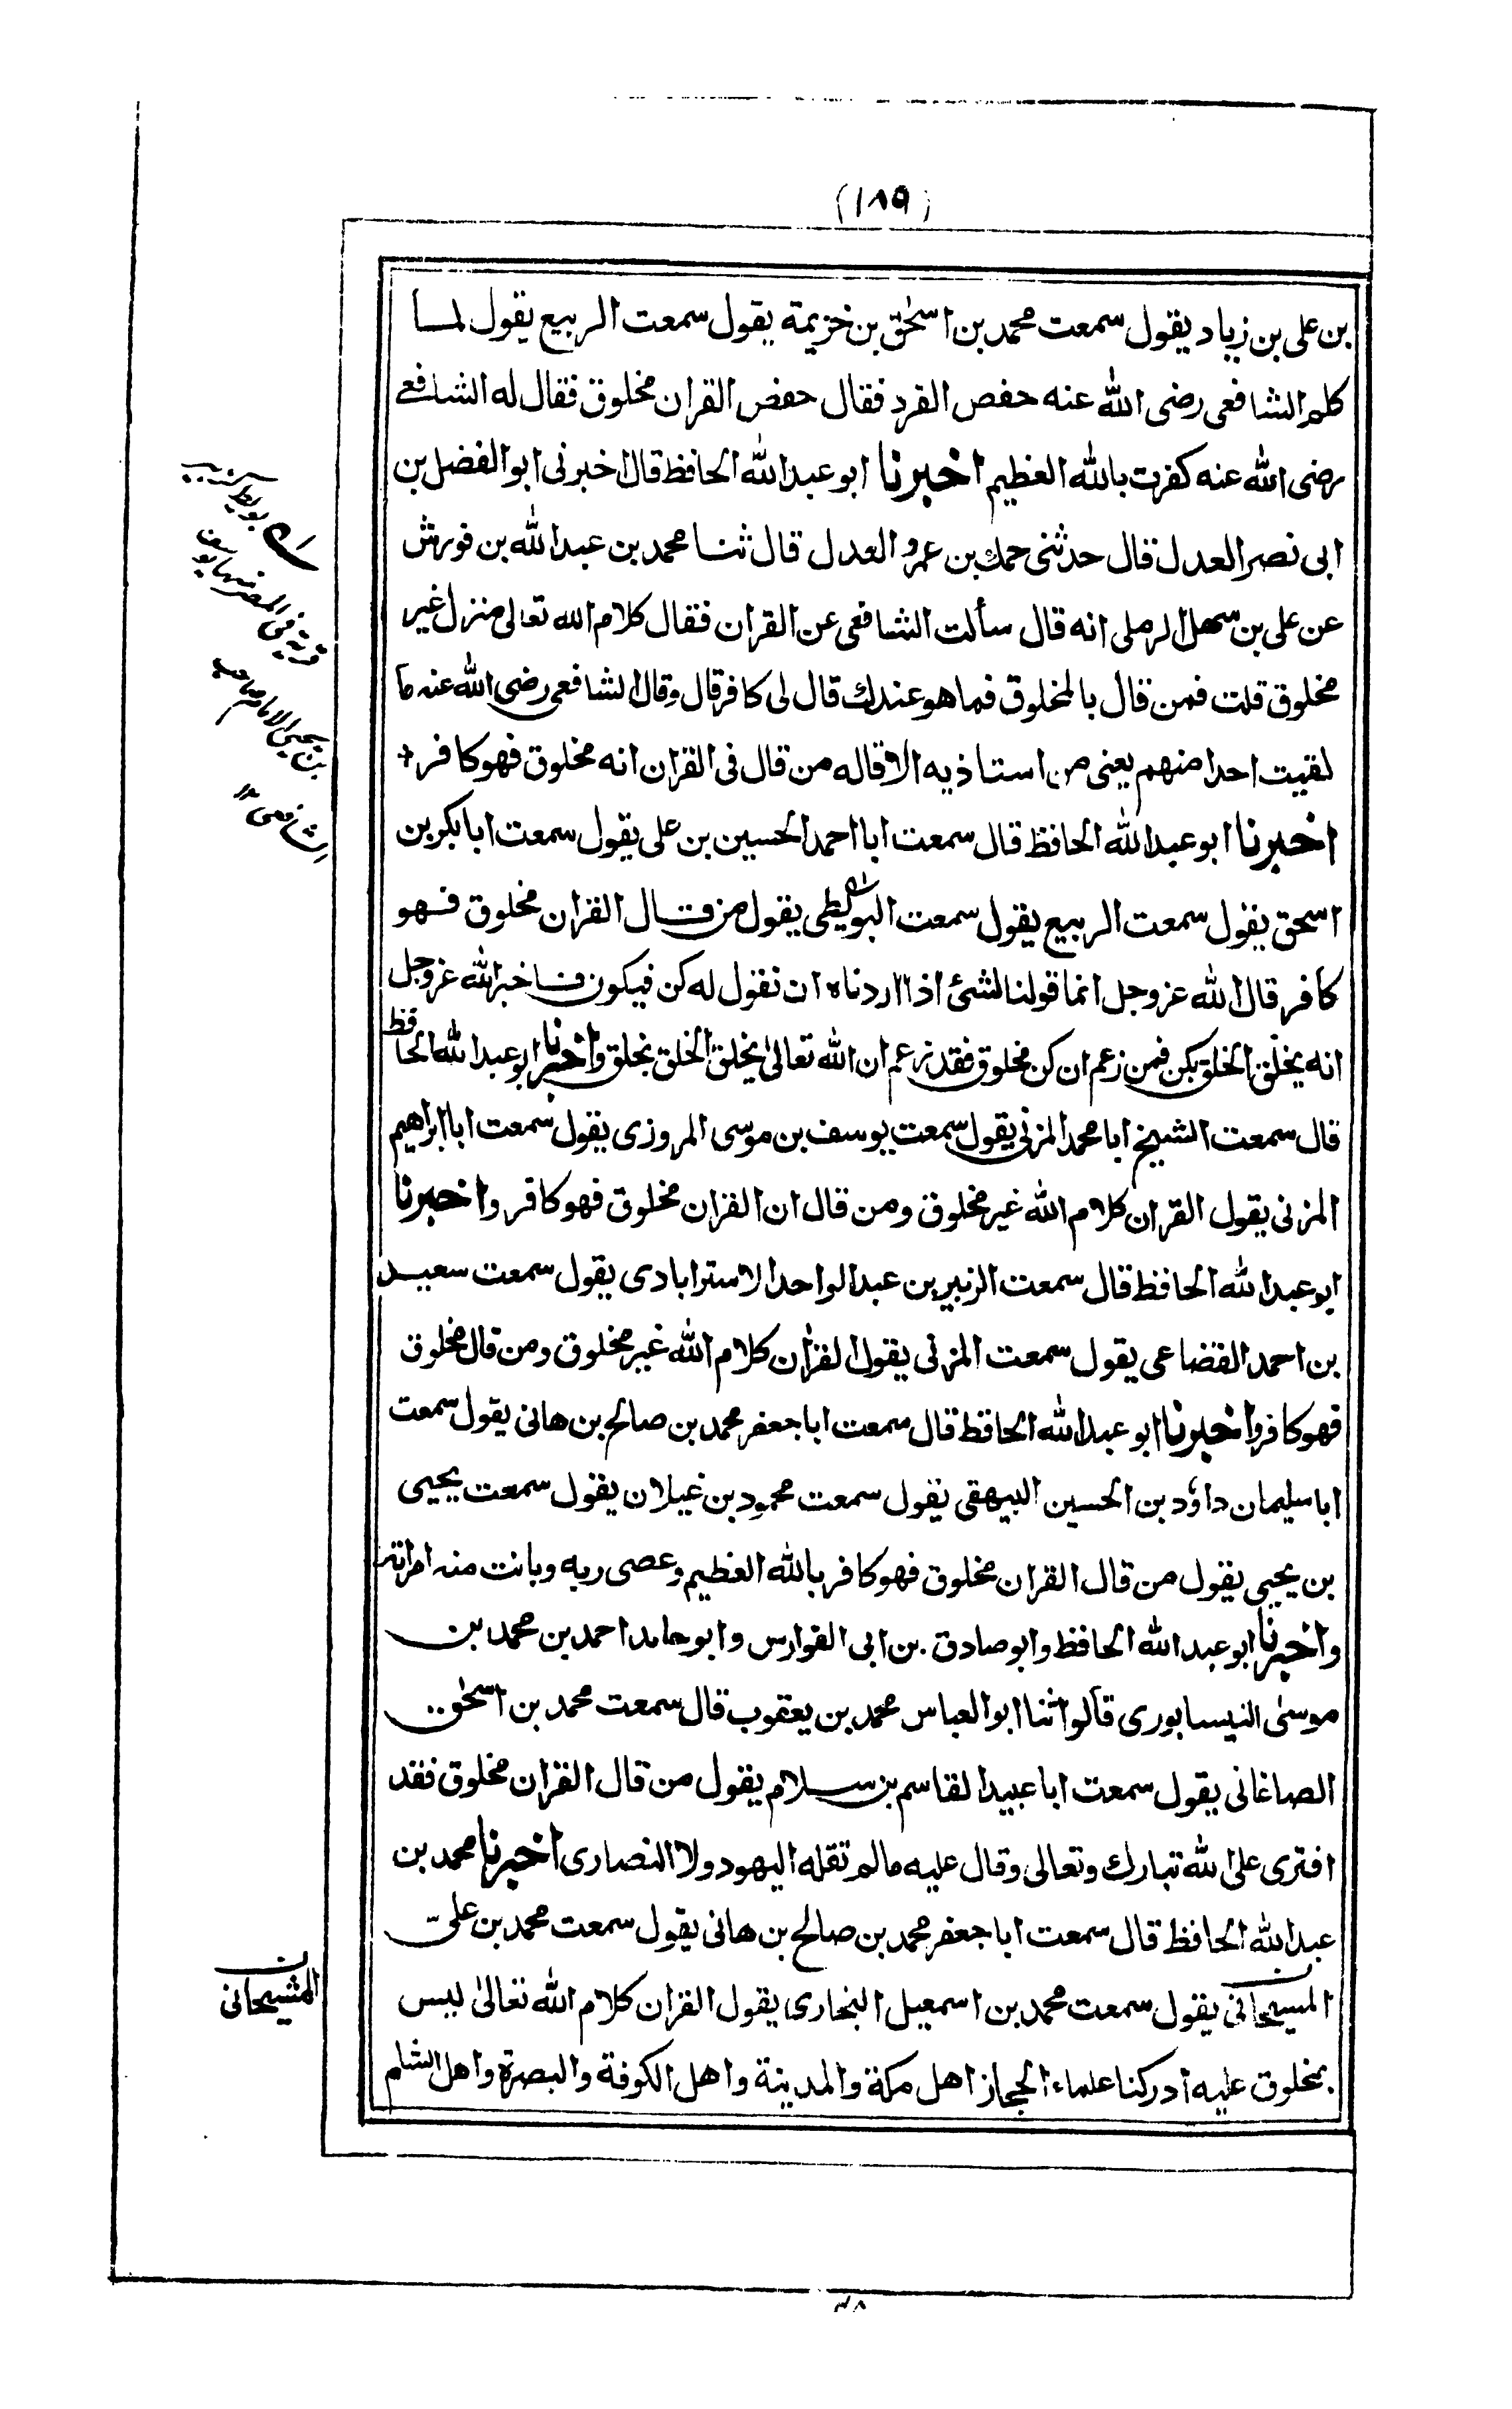 (١٨٩)
بن على بن زياد يقول سمعت محمد بن اسحٰق بن خزيمة يقول سمعت الربيع يقول لما
كلم الشافعى رضى الله عنه حفص الفرد فقال حفص القران مخلوق فقال له الشافعے
رضى الله عنه كفرت بالله العظيم اخبرنا ابو عبد الله الحافظ قال اخبرنى ابو الفضل بن
ابى نصر العدل قال حدثنى حمك بن عمرو العدل قال ثنا محمد بن عبد الله بن فورش
عن على بن سهل الرملى انه قال سألت الشافعى عن القران فقال كلام الله تعالى منزل غير
مخلوق قلت فمن قال بالمخلوق فما هو عندك قال لى كافر قال وقال الشافعى رضى الله عنه ما
لقيت احدا منهم يعنى من استاذيه الا قاله من قال فى القران انه مخلوق فهو كافر
اخبرنا ابو عبد الله الحافظ قال سمعت ابا احمد الحسين بن على يقول سمعت ابا بكر بن
اسحق يقول سمعت الربيع يقول سمعت البويطى يقول من قال القران مخلوق فهو
كافر قال الله عزوجل انما قولنا لشئ اذا اردناه ان نقول له كن فيكون فاخبر الله عزوجل
انه يخلق الخلق بكن فمن زعم ان كن مخلوق فقد زعم ان الله تعالىٰ يخلق الخلق بخلق واخبرنا ابو عبد الله الحافظ
قال سمعت الشيخ ابا محمد المزنى يقول سمعت يوسف بن موسى المروزى يقول سمعت ابا ابراهيم
المزنى يقول القران كلام الله غير مخلوق ومن قال ان القران مخلوق فهو كافر واخبرنا
ابو عبد الله الحافظ قال سمعت الزبير بن عبد الواحد الاسترابادى يقول سمعت سعيد
بن احمد القضاعى يقول سمعت المزنى يقول القران كلام الله غير مخلوق ومن قال مخلوق
فهو كافر واخبرنا ابو عبد الله الحافظ قال سمعت ابا جعفر محمد بن صالح بن هانى يقول سمعت
ابا سليمان داؤد بن الحسين البيهقى يقول سمعت محمود بن غيلان يقول سمعت يحيى
بن يحيى يقول من قال القران مخلوق فهو كافر بالله العظيم وعصى ربه وبانت منه امراته
واخبرنا ابو عبد الله الحافظ وابو صادق بن ابى الفوارس وابو حامد احمد بن محمد بن
موسىٰ النيسابورى قالوا ثنا ابو العباس محمد بن يعقوب قال سمعت محمد بن اسحٰق
الصاغانى يقول سمعت ابا عبيد القاسم بن سلام يقول من قال القران مخلوق فقد
افترى على الله تبارك وتعالى وقال عليه مالم تقله اليهود ولا النصارى اخبرنا محمد بن
عبد الله الحافظ قال سمعت ابا جعفر محمد بن صالح بن هانى يقول سمعت محمد بن علىّ
المسيحانى يقول سمعت محمد بن اسمعيل البخارى يقول القران كلام الله تعالىٰ ليس
بمخلوق عليه ادركنا علماء الحجاز اهل مكة والمدينة واهل الكوفة والبصرة واهل الشام
بن يحيى الامام صاحب
الشافعى
ن
المشيحانى